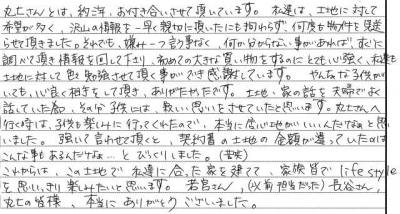 丸七さんとは、約2年、お付き合いさせて頂いています。私達は、土地に対して
希望が多く、沢山の情報を一早く親切に頂いたにも拘わらず、何度も物件を見送
らせて頂きました。それでも、嫌み一つ言う事なく、何か分からない事があれば、すぐに
調べて頂き情報を回して下さり、初めての大きな買い物をするのにとても心強く、私達も
土地に対して色々勉強させて頂く事ができ感謝しています。やんちゃな子供が
いても、いつも良く相手をして頂き、ありがたかったです。土地、家の話を夫婦でよく
話していた為、その分子供には、寂しい思いをさせていたと思います。丸七さんへ
行く時は、子供も楽しみに行ってくれたので、本当に居心地がいいんだなぁと思
いました。強いて言わせて頂くと、契約書の土地の金額が違っていたのは
こんな事もあるんだなぁ…とびっくりしました。(苦笑)
これからは、この土地で私達に合った家を建てて、家族皆でlife style
を思いっきり楽しみたいと思います。若宮さん、(以前担当だった)長谷さん、
丸七の皆様、本当にありがとうございました。